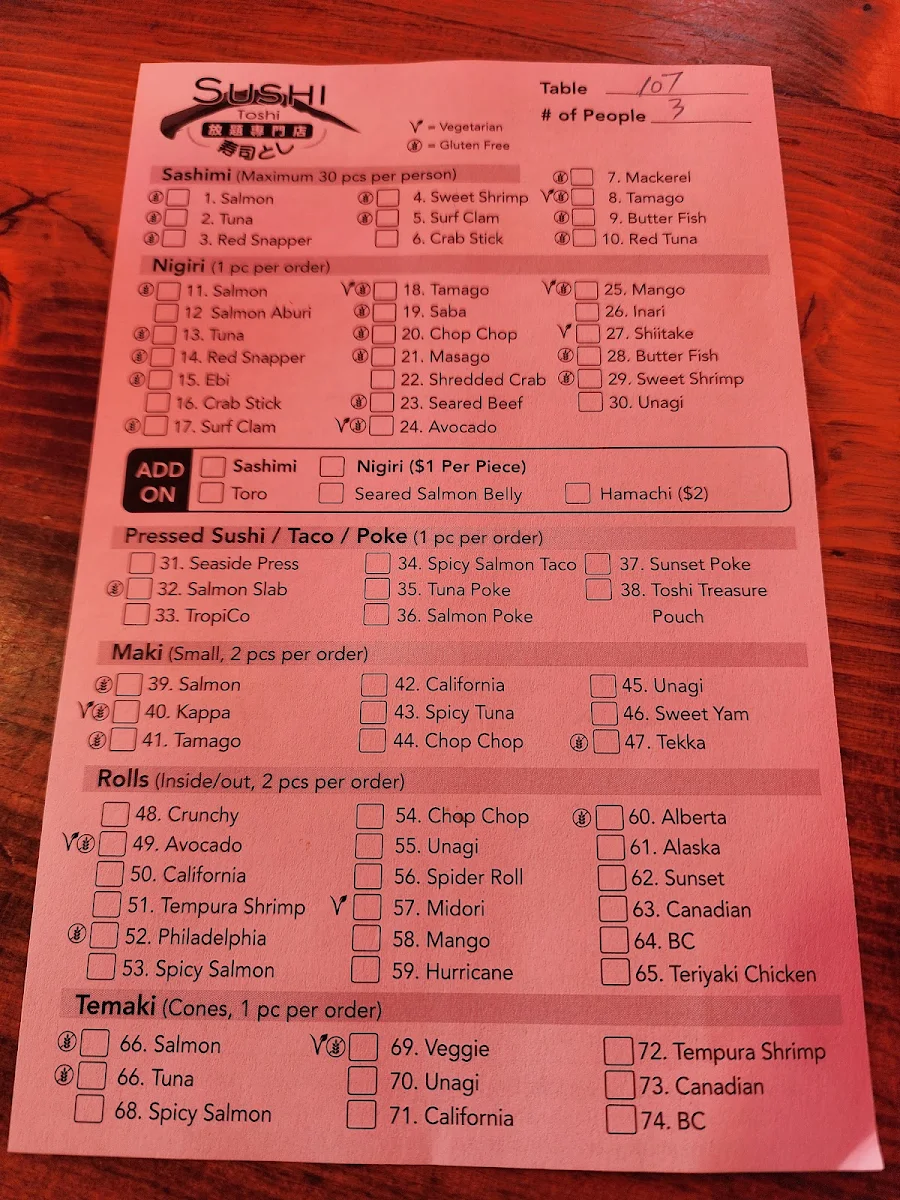 SUSHI
Toshi
放題專門店
寿司とし
Table 107
# of People 3
V = Vegetarian
= Gluten Free
Sashimi (Maximum 30 pcs per person)
7. Mackerel
1. Salmon 4. Sweet Shrimp 8. Tamago
2. Tuna 5. Surf Clam 9. Butter Fish
3. Red Snapper 6. Crab Stick 10. Red Tuna
Nigiri (1 pc per order)
11. Salmon V 18. Tamago V 25. Mango
12 Salmon Aburi 19. Saba 26. Inari
13. Tuna 20. Chop Chop V 27. Shiitake
14. Red Snapper 21. Masago 28. Butter Fish
15. Ebi 22. Shredded Crab 29. Sweet Shrimp
16. Crab Stick 23. Seared Beef 30. Unagi
17. Surf Clam V 24. Avocado
ADD ON
Sashimi Nigiri ($1 Per Piece)
Toro Seared Salmon Belly Hamachi ($2)
Pressed Sushi / Taco / Poke (1 pc per order)
31. Seaside Press 34. Spicy Salmon Taco 37. Sunset Poke
32. Salmon Slab 35. Tuna Poke 38. Toshi Treasure
33. TropiCo 36. Salmon Poke Pouch
Maki (Small, 2 pcs per order)
39. Salmon 42. California 45. Unagi
V 40. Kappa 43. Spicy Tuna 46. Sweet Yam
41. Tamago 44. Chop Chop 47. Tekka
Rolls (Inside/out, 2 pcs per order)
48. Crunchy 54. Chop Chop 60. Alberta
V 49. Avocado 55. Unagi 61. Alaska
50. California 56. Spider Roll 62. Sunset
51. Tempura Shrimp V 57. Midori 63. Canadian
52. Philadelphia 58. Mango 64. BC
53. Spicy Salmon 59. Hurricane 65. Teriyaki Chicken
Temaki (Cones, 1 pc per order)
66. Salmon V 69. Veggie 72. Tempura Shrimp
66. Tuna 70. Unagi 73. Canadian
68. Spicy Salmon 71. California 74. BC